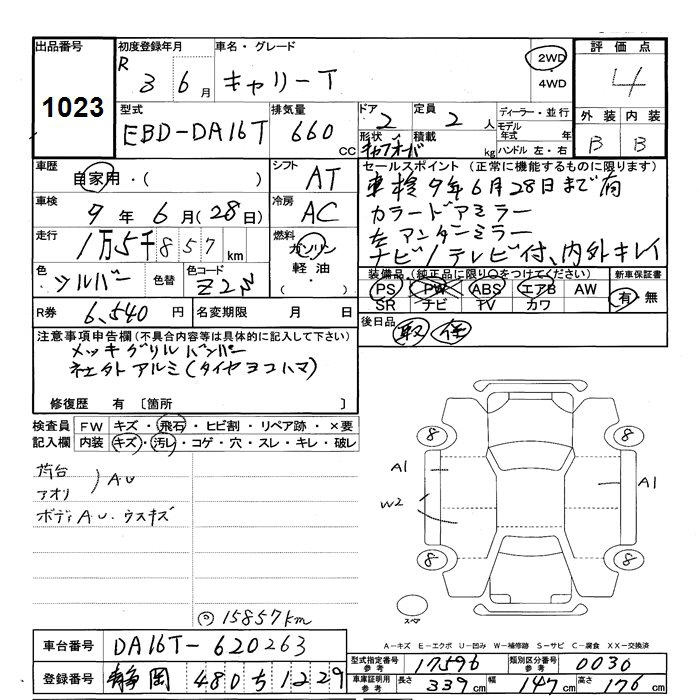 出品番号
1023
初度登録年月
R 3 6 月
車名・グレード
キャリーT
2WD
・
4WD
評価点
4
外装 内装
B B
型式
EBD-DA16T
排気量
660 CC
ドア
2
定員
2 人
形状
キャブオーバ
積載
kg
ディーラー・並行
モデル年式 年
ハンドル 左・右
車歴
自家用・( )
シフト
AT
車検
9 年 6 月(28日)
冷房
AC
走行
1万5千857 km
燃料
ガソリン
軽油
・( )
色
シルバー
色替
色コード
Z2S
R券 6,540 円
名変期限 月 日
セールスポイント (正常に機能するものに限ります)
車検 9年6月28日まで有
カラードアミラー
左アンダーミラー
ナビ/テレビ付、内外キレイ
装備品(純正品に限り○をつけてください)
PS PW ABS エアB AW
SR ナビ TV カワ
新車保証書
有・無
後日品
取 保
注意事項申告欄(不具合内容等は具体的に記入して下さい)
メッキグリルバンパー
社外アルミ(タイヤヨコハマ)
修復歴 有 〔箇所 〕
検査員記入欄
FW キズ・飛石・ヒビ割・リペア跡・×要
内装 キズ・汚レ・コゲ・穴・スレ・キレ・破レ
荷台
アオリ
A.U
ボディA.U.ウスキズ
◎15857km
8 8
A1 A1
W2
8 8
スペア
A−キズ E−エクボ U−凹み W−補修跡 S−サビ C−腐食 XX−交換済
車台番号 DA16T-620263
登録番号 静岡 480 ち 1229
型式指定番号 参考 17596
類別区分番号 参考 0030
車庫証明用 参考 長さ 339cm 幅 147cm 高さ 176cm